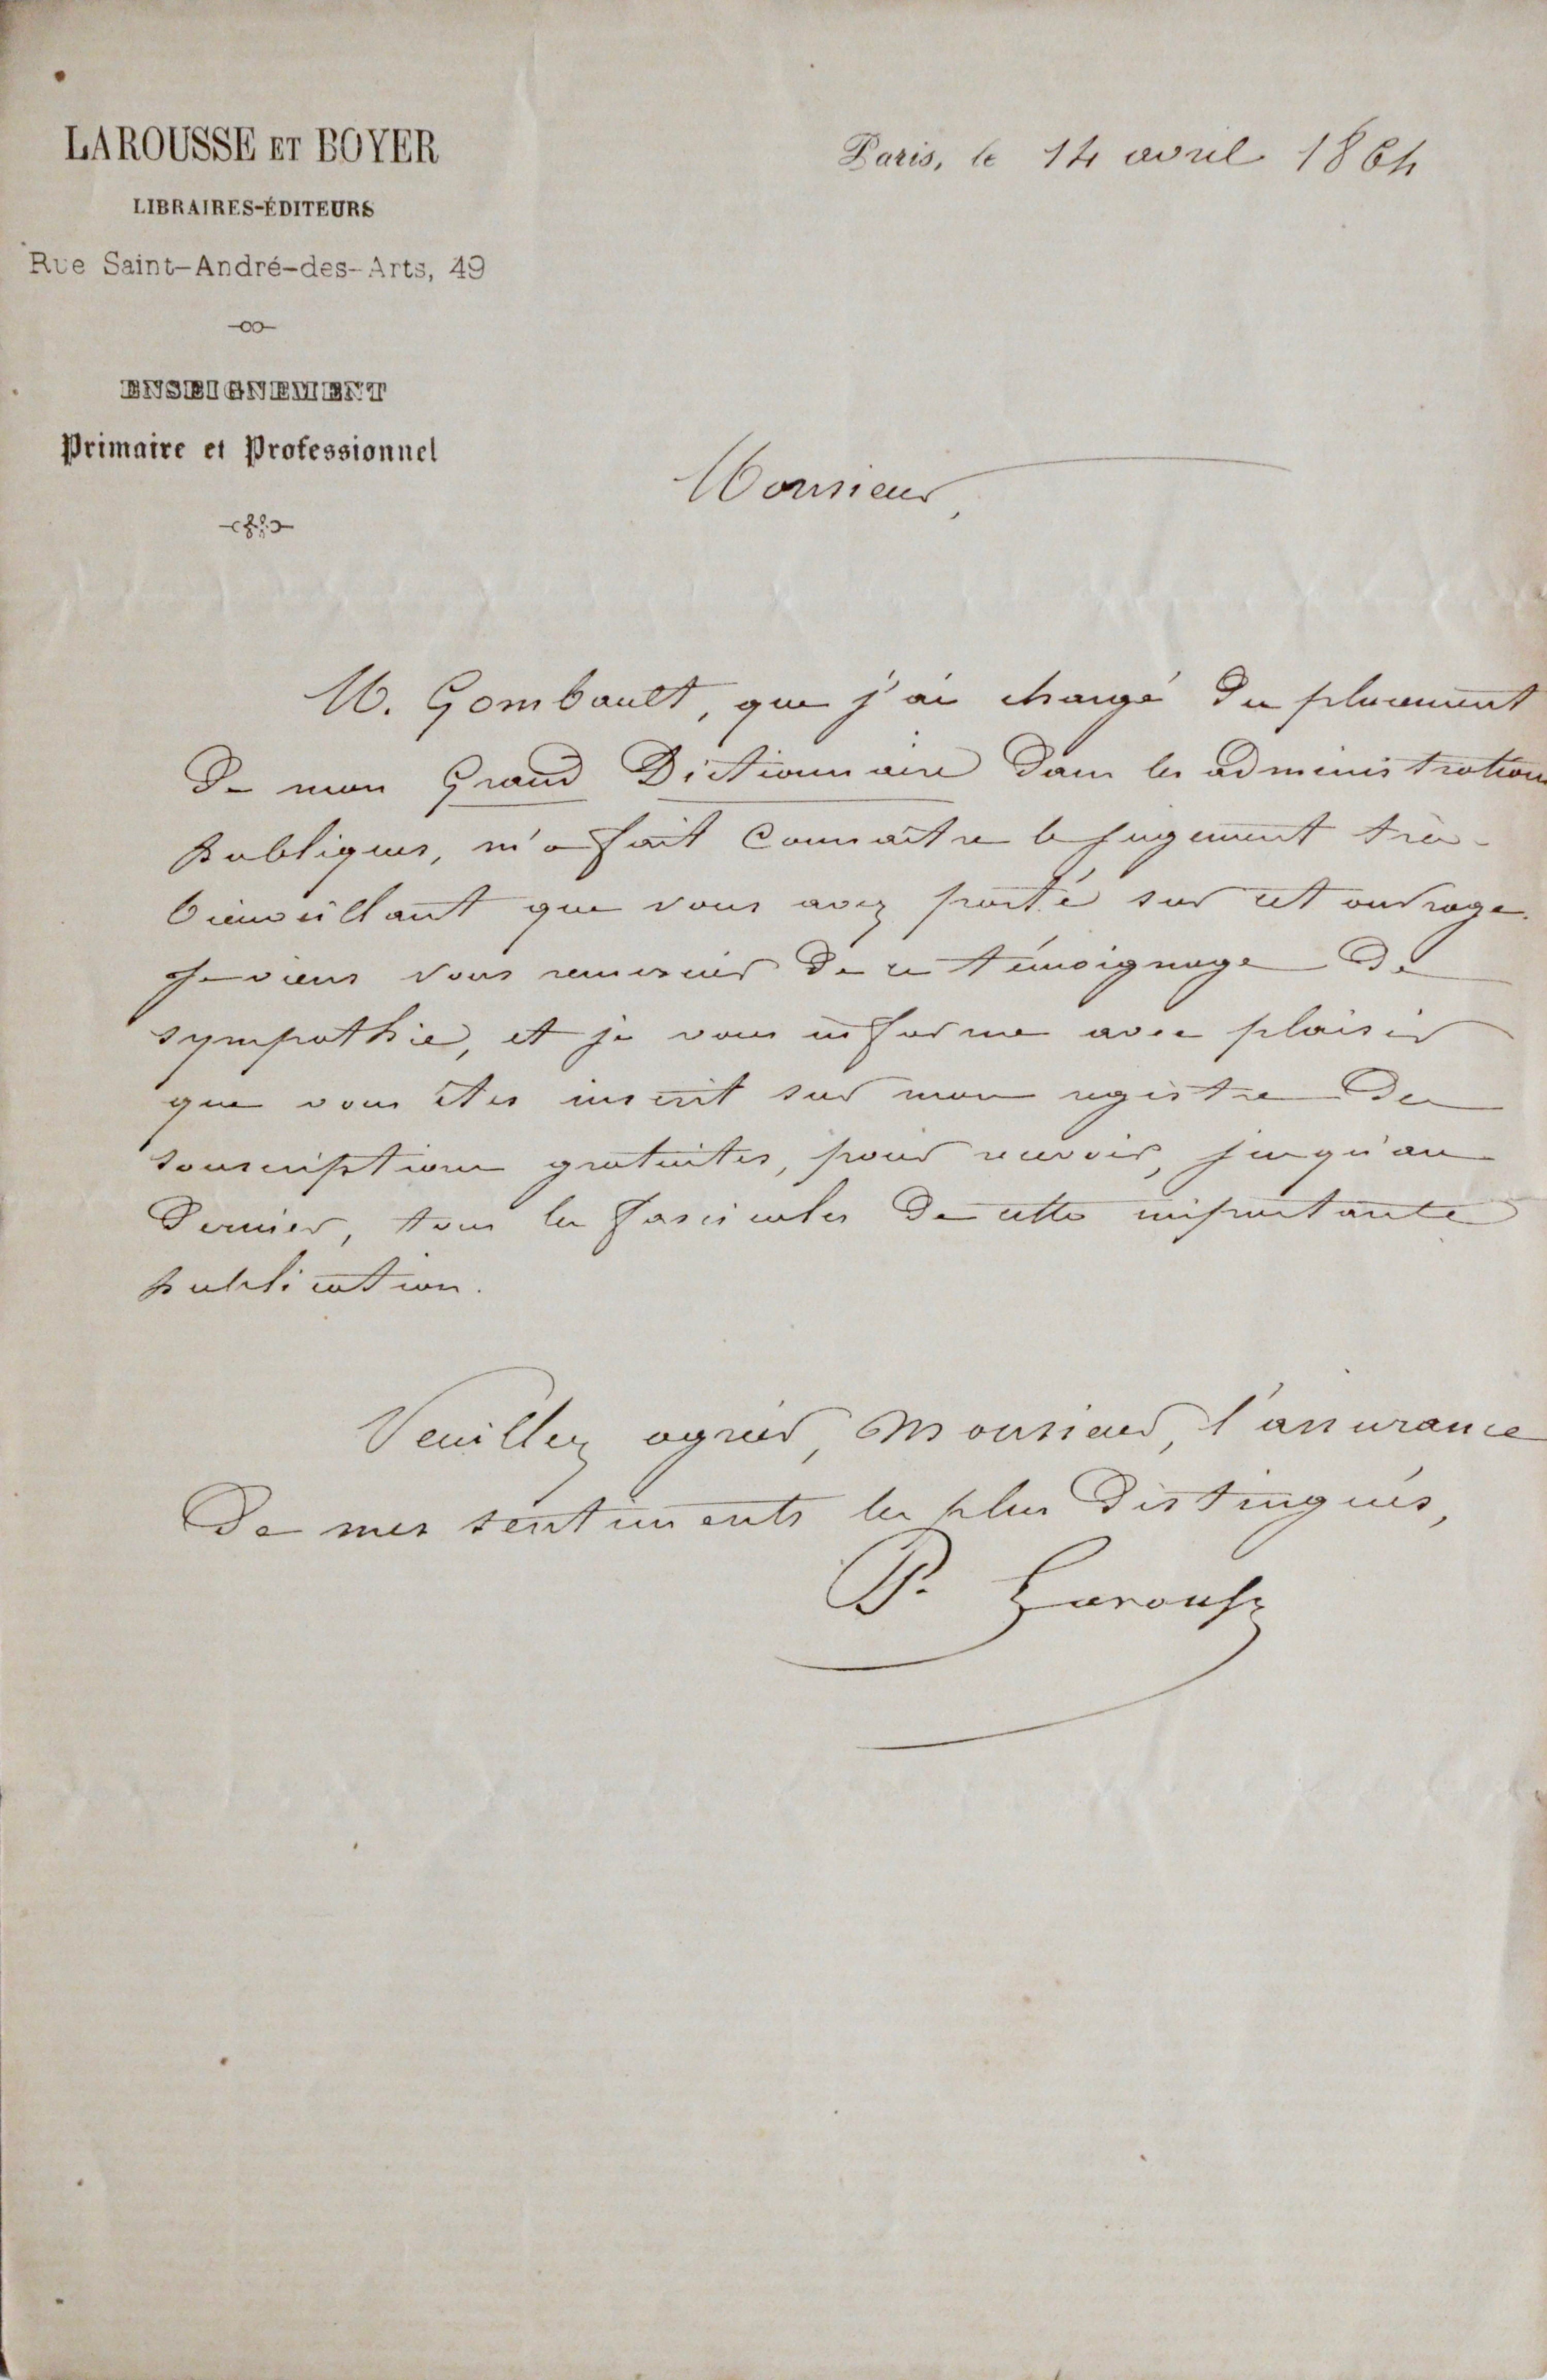 LAROUSSE ET BOYER
LIBRAIRES-ÉDITEURS
Rue Saint-André-des-Arts, 49
ENSEIGNEMENT
Primaire et Professionnel
Paris, le 14 avril 1864
Monsieur,
M. Gombault, que j'ai chargé du placement
de mon Grand Dictionnaire dans les administrations
publiques, m'a fait connaître le jugement très-
bienveillant que vous avez porté sur cet ouvrage.
Je viens vous remercier de ce témoignage de
sympathie, et je vous informe avec plaisir
que vous êtes inscrit sur mon registre des
souscriptions gratuites, pour recevoir, jusqu'au
dernier, tous les fascicules de cette importante
publication.
Veuillez agréer, Monsieur, l'assurance
de mes sentiments les plus distingués,
P. Larousse